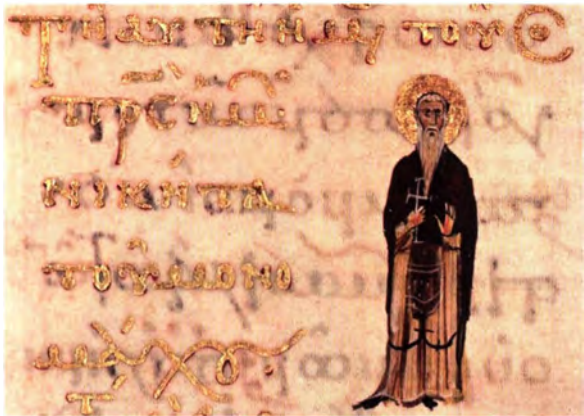 Τῆ αυτῆ ημ τοῦ Ο
πρ̅ς ημ
νικήτα
τοῦ μονο
μάχου.